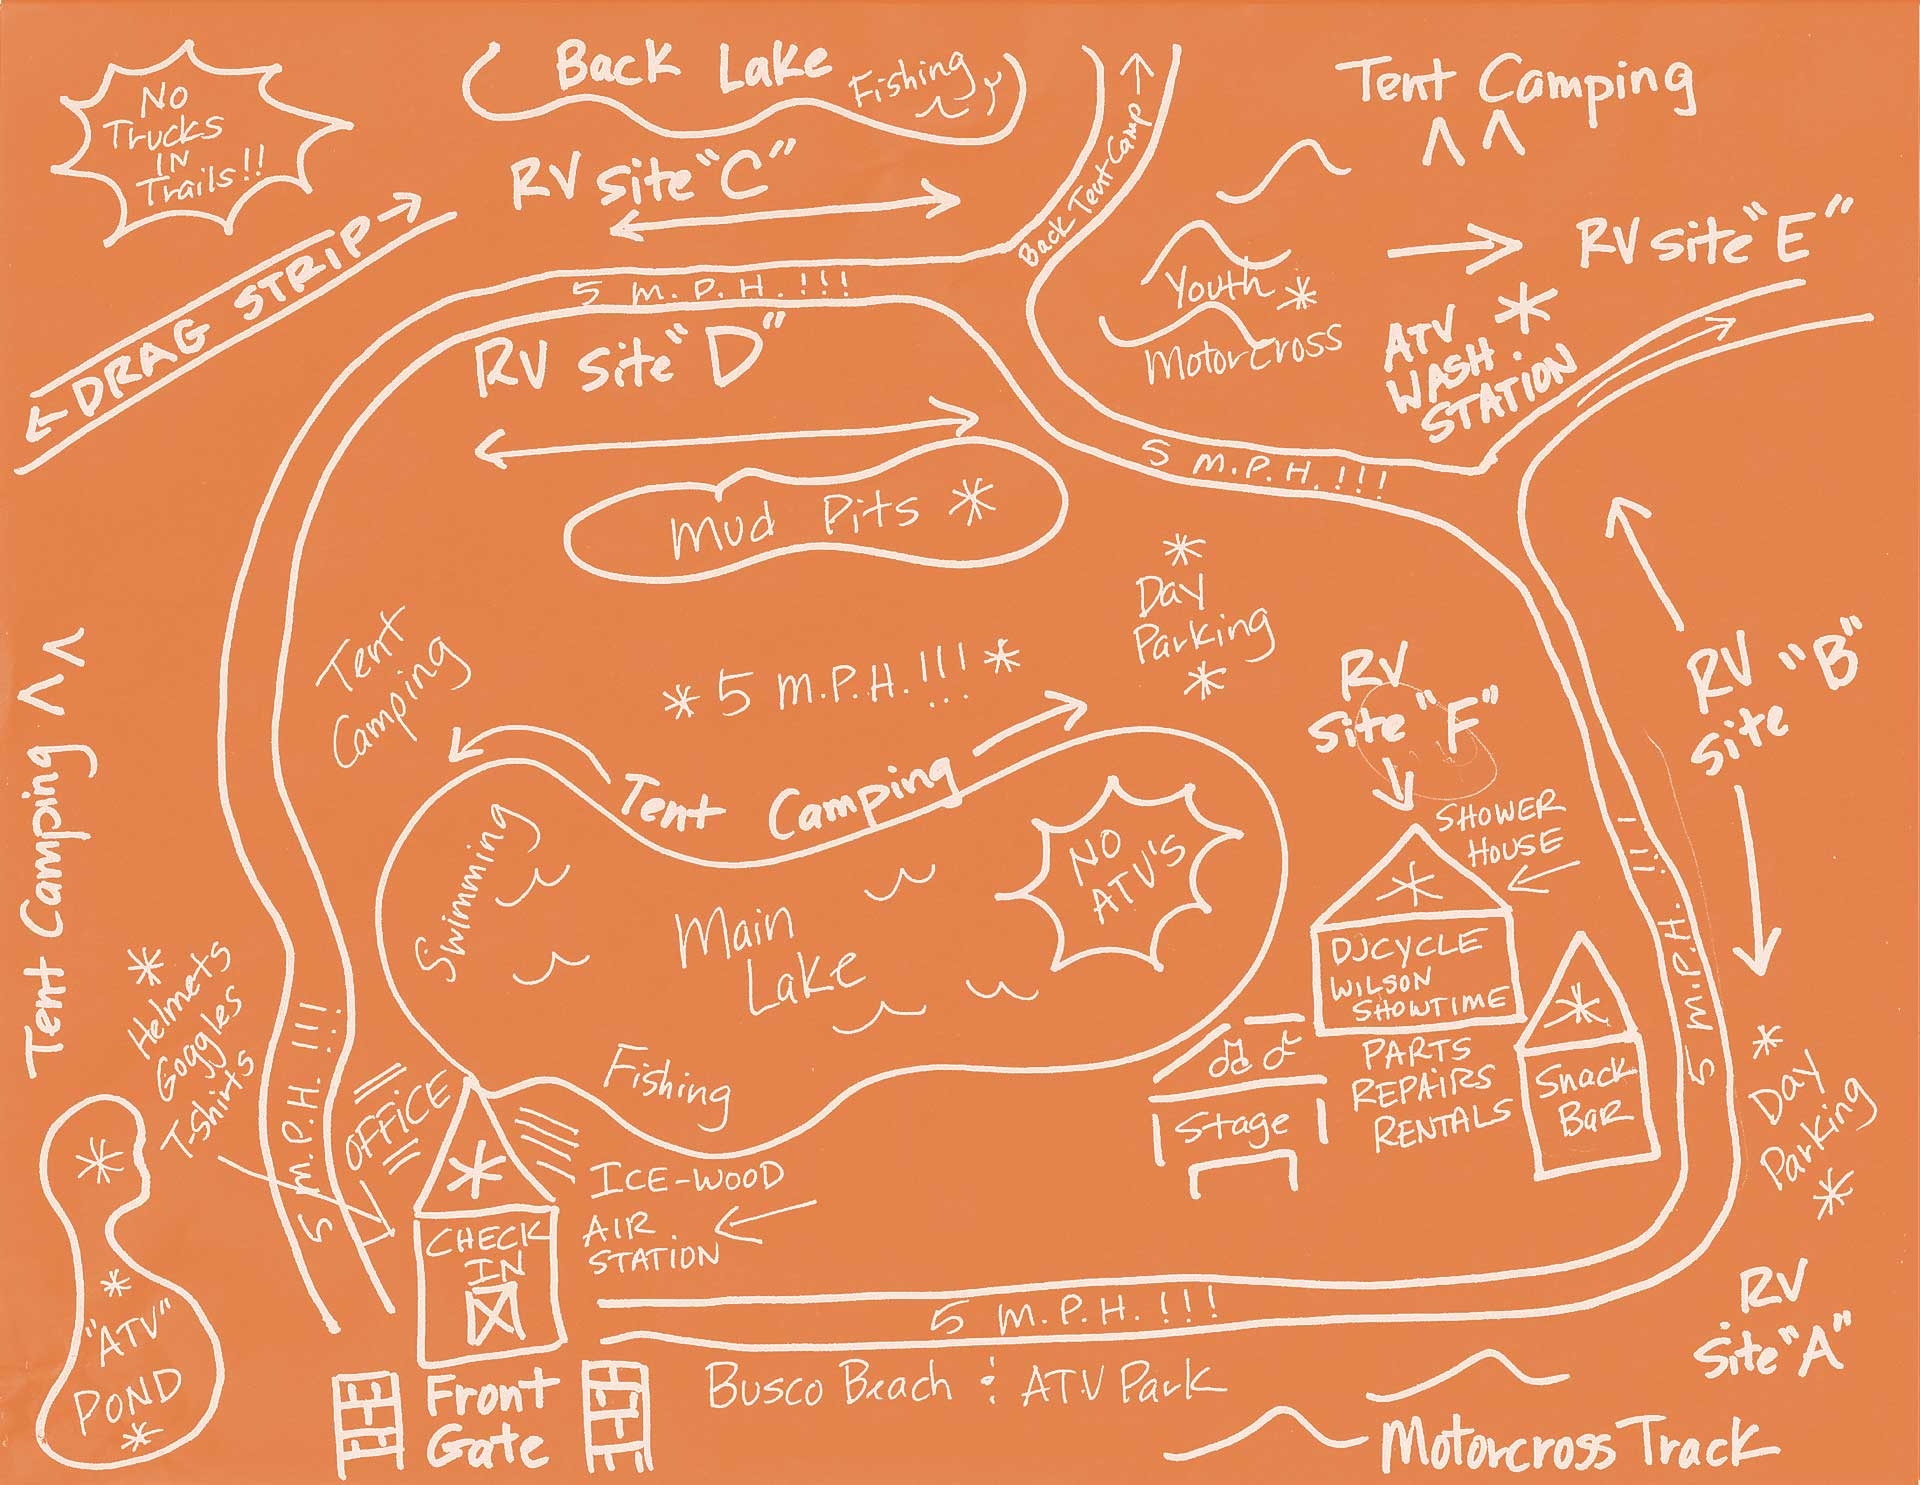 NO
Trucks
IN
Trails!!
Back Lake
Fishing
RV Site "C"
Back Tent Camp
Tent Camping
RV Site "E"
← DRAG STRIP →
5 M.P.H.!!!
Youth
Motorcross
ATV
WASH
STATION
RV Site "D"
Mud Pits
5 M.P.H.!!!
Day
Parking
Tent
Camping
5 M.P.H.!!!
RV
Site "F"
RV
Site "B"
Tent Camping
Tent Camping
NO
ATV'S
SHOWER
HOUSE
Swimming
Main
Lake
DJCYCLE
WILSON
SHOWTIME
5 M.P.H. !!!
Helmets
Goggles
T-shirts
5 M.P.H. !!!
OFFICE
Fishing
PARTS
REPAIRS
RENTALS
Stage
Snack
Bar
Day
Parking
CHECK
IN
ICE-WOOD
AIR
STATION
"ATV"
POND
5 M.P.H.!!!
RV
Site "A"
Front
Gate
Busco Beach : ATV Park
Motorcross Track